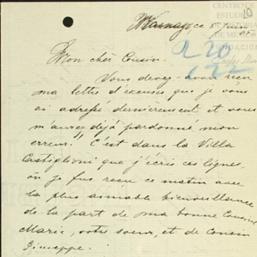 ce 8 Juin
Mon cher Cousin
Vous devez avoir reçu
ma lettre d'excuses que je vous
ai adressé dernièrement et vous
m'avez déjà pardonné mon
erreur! C'est dans la Villa
Castiglioni que j'écris ces lignes
où je fus reçu ce matin avec
la plus aimable bienveillance
de la part de ma bonne Cousine
Marie, votre soeur, et de Cousin
Giuseppe.